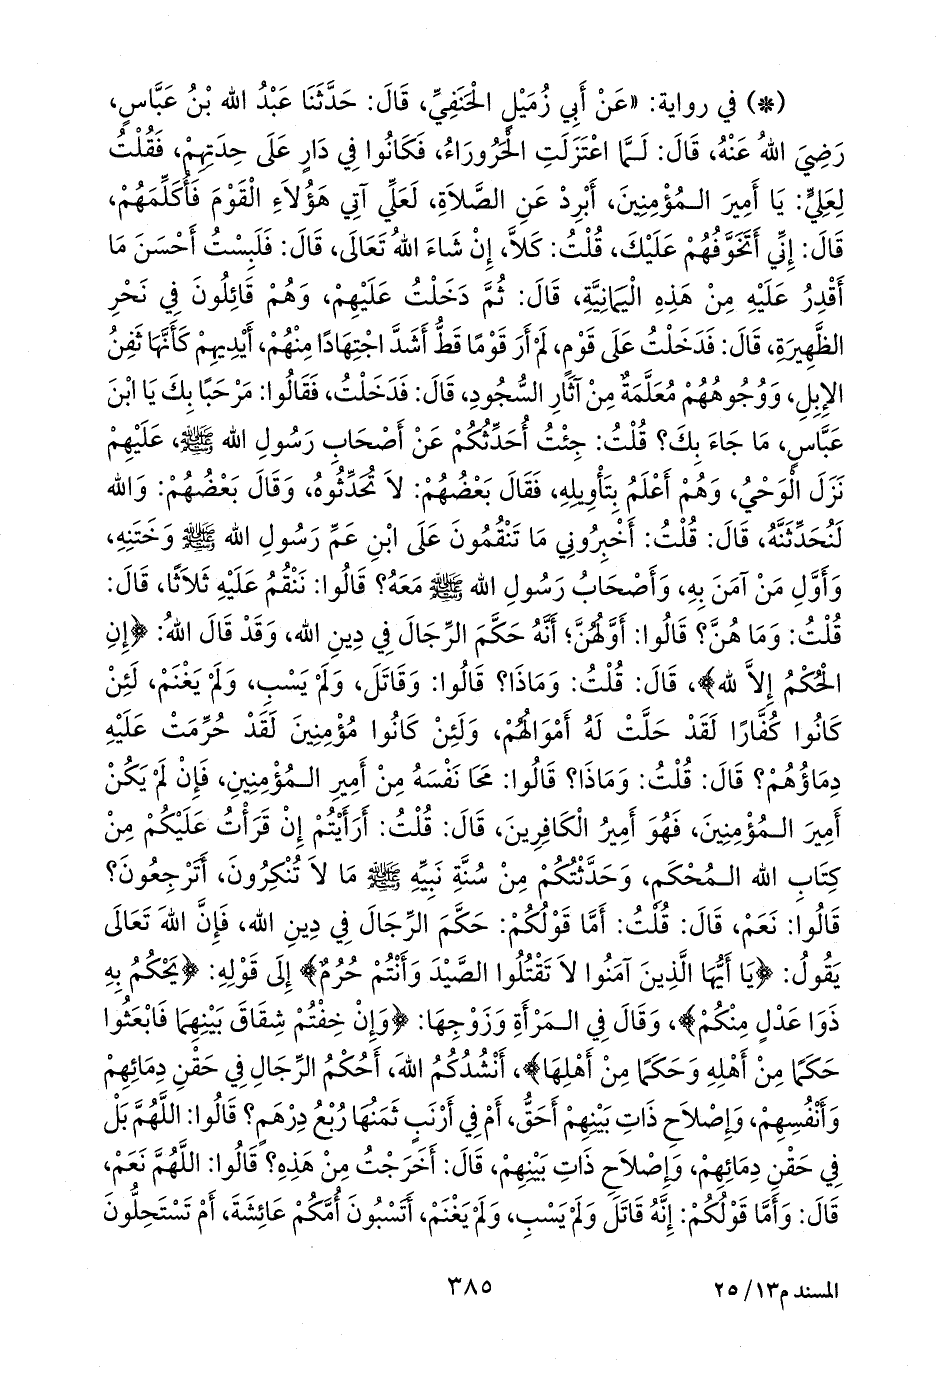 (*) في رواية: «عَنْ أَبِي زُمَيْلٍ الْحَنَفِيِّ، قَالَ: حَدَّثَنَا عَبْدُ الله بْنُ عَبَّاسٍ،
رَضِيَ اللهُ عَنْهُ، قَالَ: لَـمَّا اعْتَزَلَتِ الْحَرُورَاءُ، فَكَانُوا فِي دَارٍ عَلَى حِدَتِهِمْ، فَقُلْتُ
لِعَلِيٍّ: يَا أَمِيرَ الـمُؤْمِنِينَ، أَبْرِدْ عَنِ الصَّلاَةِ، لَعَلِّي آتِي هَؤُلاَءِ الْقَوْمَ فَأُكَلِّمَهُمْ،
قَالَ: إِنِّي أَتَخَوَّفُهُمْ عَلَيْكَ، قُلْتُ: كَلاَّ، إِنْ شَاءَ اللهُ تَعَالَى، قَالَ: فَلَبِسْتُ أَحْسَنَ مَا
أَقْدِرُ عَلَيْهِ مِنْ هَذِهِ الْيَمَانِيَّةِ، قَالَ: ثُمَّ دَخَلْتُ عَلَيْهِمْ، وَهُمْ قَائِلُونَ فِي نَحْرِ
الظَّهِيرَةِ، قَالَ: فَدَخَلْتُ عَلَى قَوْمٍ، لَمْ أَرَ قَوْمًا قَطُّ أَشَدَّ اجْتِهَادًا مِنْهُمْ، أَيْدِيهِمْ كَأَنَّهَا ثَفِنُ
الإِبِلِ، وَوُجُوهُهُمْ مُعَلَّمَةٌ مِنْ آثَارِ السُّجُودِ، قَالَ: فَدَخَلْتُ، فَقَالُوا: مَرْحَبًا بِكَ يَا ابْنَ
عَبَّاسٍ، مَا جَاءَ بِكَ؟ قُلْتُ: جِئْتُ أُحَدِّثُكُمْ عَنْ أَصْحَابِ رَسُولِ الله ﷺ، عَلَيْهِمْ
نَزَلَ الْوَحْيُ، وَهُمْ أَعْلَمُ بِتَأْوِيلِهِ، فَقَالَ بَعْضُهُمْ: لاَ تُحَدِّثُوهُ، وَقَالَ بَعْضُهُمْ: وَالله
لَنُحَدِّثَنَّهُ، قَالَ: قُلْتُ: أَخْبِرُونِي مَا تَنْقُمُونَ عَلَى ابْنِ عَمِّ رَسُولِ الله ﷺ وَخَتَنِهِ،
وَأَوَّلِ مَنْ آمَنَ بِهِ، وَأَصْحَابُ رَسُولِ الله ﷺ مَعَهُ؟ قَالُوا: نَنْقُمُ عَلَيْهِ ثَلاَثًا، قَالَ:
قُلْتُ: وَمَا هُنَّ؟ قَالُوا: أَوَّلُهُنَّ؛ أَنَّهُ حَكَّمَ الرِّجَالَ فِي دِينِ الله، وَقَدْ قَالَ اللهُ: ﴿إِنِ
الْحُكْمُ إِلاَّ لله﴾، قَالَ: قُلْتُ: وَمَاذَا؟ قَالُوا: وَقَاتَلَ، وَلَمْ يَسْبِ، وَلَمْ يَغْنَمْ، لَئِنْ
كَانُوا كُفَّارًا لَقَدْ حَلَّتْ لَهُ أَمْوَالُهُمْ، وَلَئِنْ كَانُوا مُؤْمِنِينَ لَقَدْ حُرِّمَتْ عَلَيْهِ
دِمَاؤُهُمْ؟ قَالَ: قُلْتُ: وَمَاذَا؟ قَالُوا: مَحَا نَفْسَهُ مِنْ أَمِيرِ الـمُؤْمِنِينَ، فَإِنْ لَمْ يَكُنْ
أَمِيرَ الـمُؤْمِنِينَ، فَهُوَ أَمِيرُ الْكَافِرِينَ، قَالَ: قُلْتُ: أَرَأَيْتُمْ إِنْ قَرَأْتُ عَلَيْكُمْ مِنْ
كِتَابِ الله الـمُحْكَمِ، وَحَدَّثْتُكُمْ مِنْ سُنَّةِ نَبِيِّهِ ﷺ مَا لاَ تُنْكِرُونَ، أَتَرْجِعُونَ؟
قَالُوا: نَعَمْ، قَالَ: قُلْتُ: أَمَّا قَوْلُكُمْ: حَكَّمَ الرِّجَالَ فِي دِينِ الله، فَإِنَّ اللهَ تَعَالَى
يَقُولُ: ﴿يَا أَيُّهَا الَّذِينَ آمَنُوا لاَ تَقْتُلُوا الصَّيْدَ وَأَنْتُمْ حُرُمٌ﴾ إِلَى قَوْلِهِ: ﴿يَحْكُمُ بِهِ
ذَوَا عَدْلٍ مِنْكُمْ﴾، وَقَالَ فِي الـمَرْأَةِ وَزَوْجِهَا: ﴿وَإِنْ خِفْتُمْ شِقَاقَ بَيْنِهِمَا فَابْعَثُوا
حَكَمًا مِنْ أَهْلِهِ وَحَكَمًا مِنْ أَهْلِهَا﴾، أَنْشُدُكُمُ اللهَ، أَحُكْمُ الرِّجَالِ فِي حَقْنِ دِمَائِهِمْ
وَأَنْفُسِهِمْ، وَإِصْلاَحِ ذَاتِ بَيْنِهِمْ أَحَقُّ، أَمْ فِي أَرْنَبٍ ثَمَنُهَا رُبْعُ دِرْهَمٍ؟ قَالُوا: اللَّهُمَّ بَلْ
فِي حَقْنِ دِمَائِهِمْ، وَإِصْلاَحِ ذَاتِ بَيْنِهِمْ، قَالَ: أَخَرَجْتُ مِنْ هَذِهِ؟ قَالُوا: اللَّهُمَّ نَعَمْ،
قَالَ: وَأَمَّا قَوْلُكُمْ: إِنَّهُ قَاتَلَ وَلَمْ يَسْبِ، وَلَمْ يَغْنَمْ، أَتَسْبُونَ أُمَّكُمْ عَائِشَةَ، أَمْ تَسْتَحِلُّونَ
المسند م١٣/ ٢٥
٣٨٥